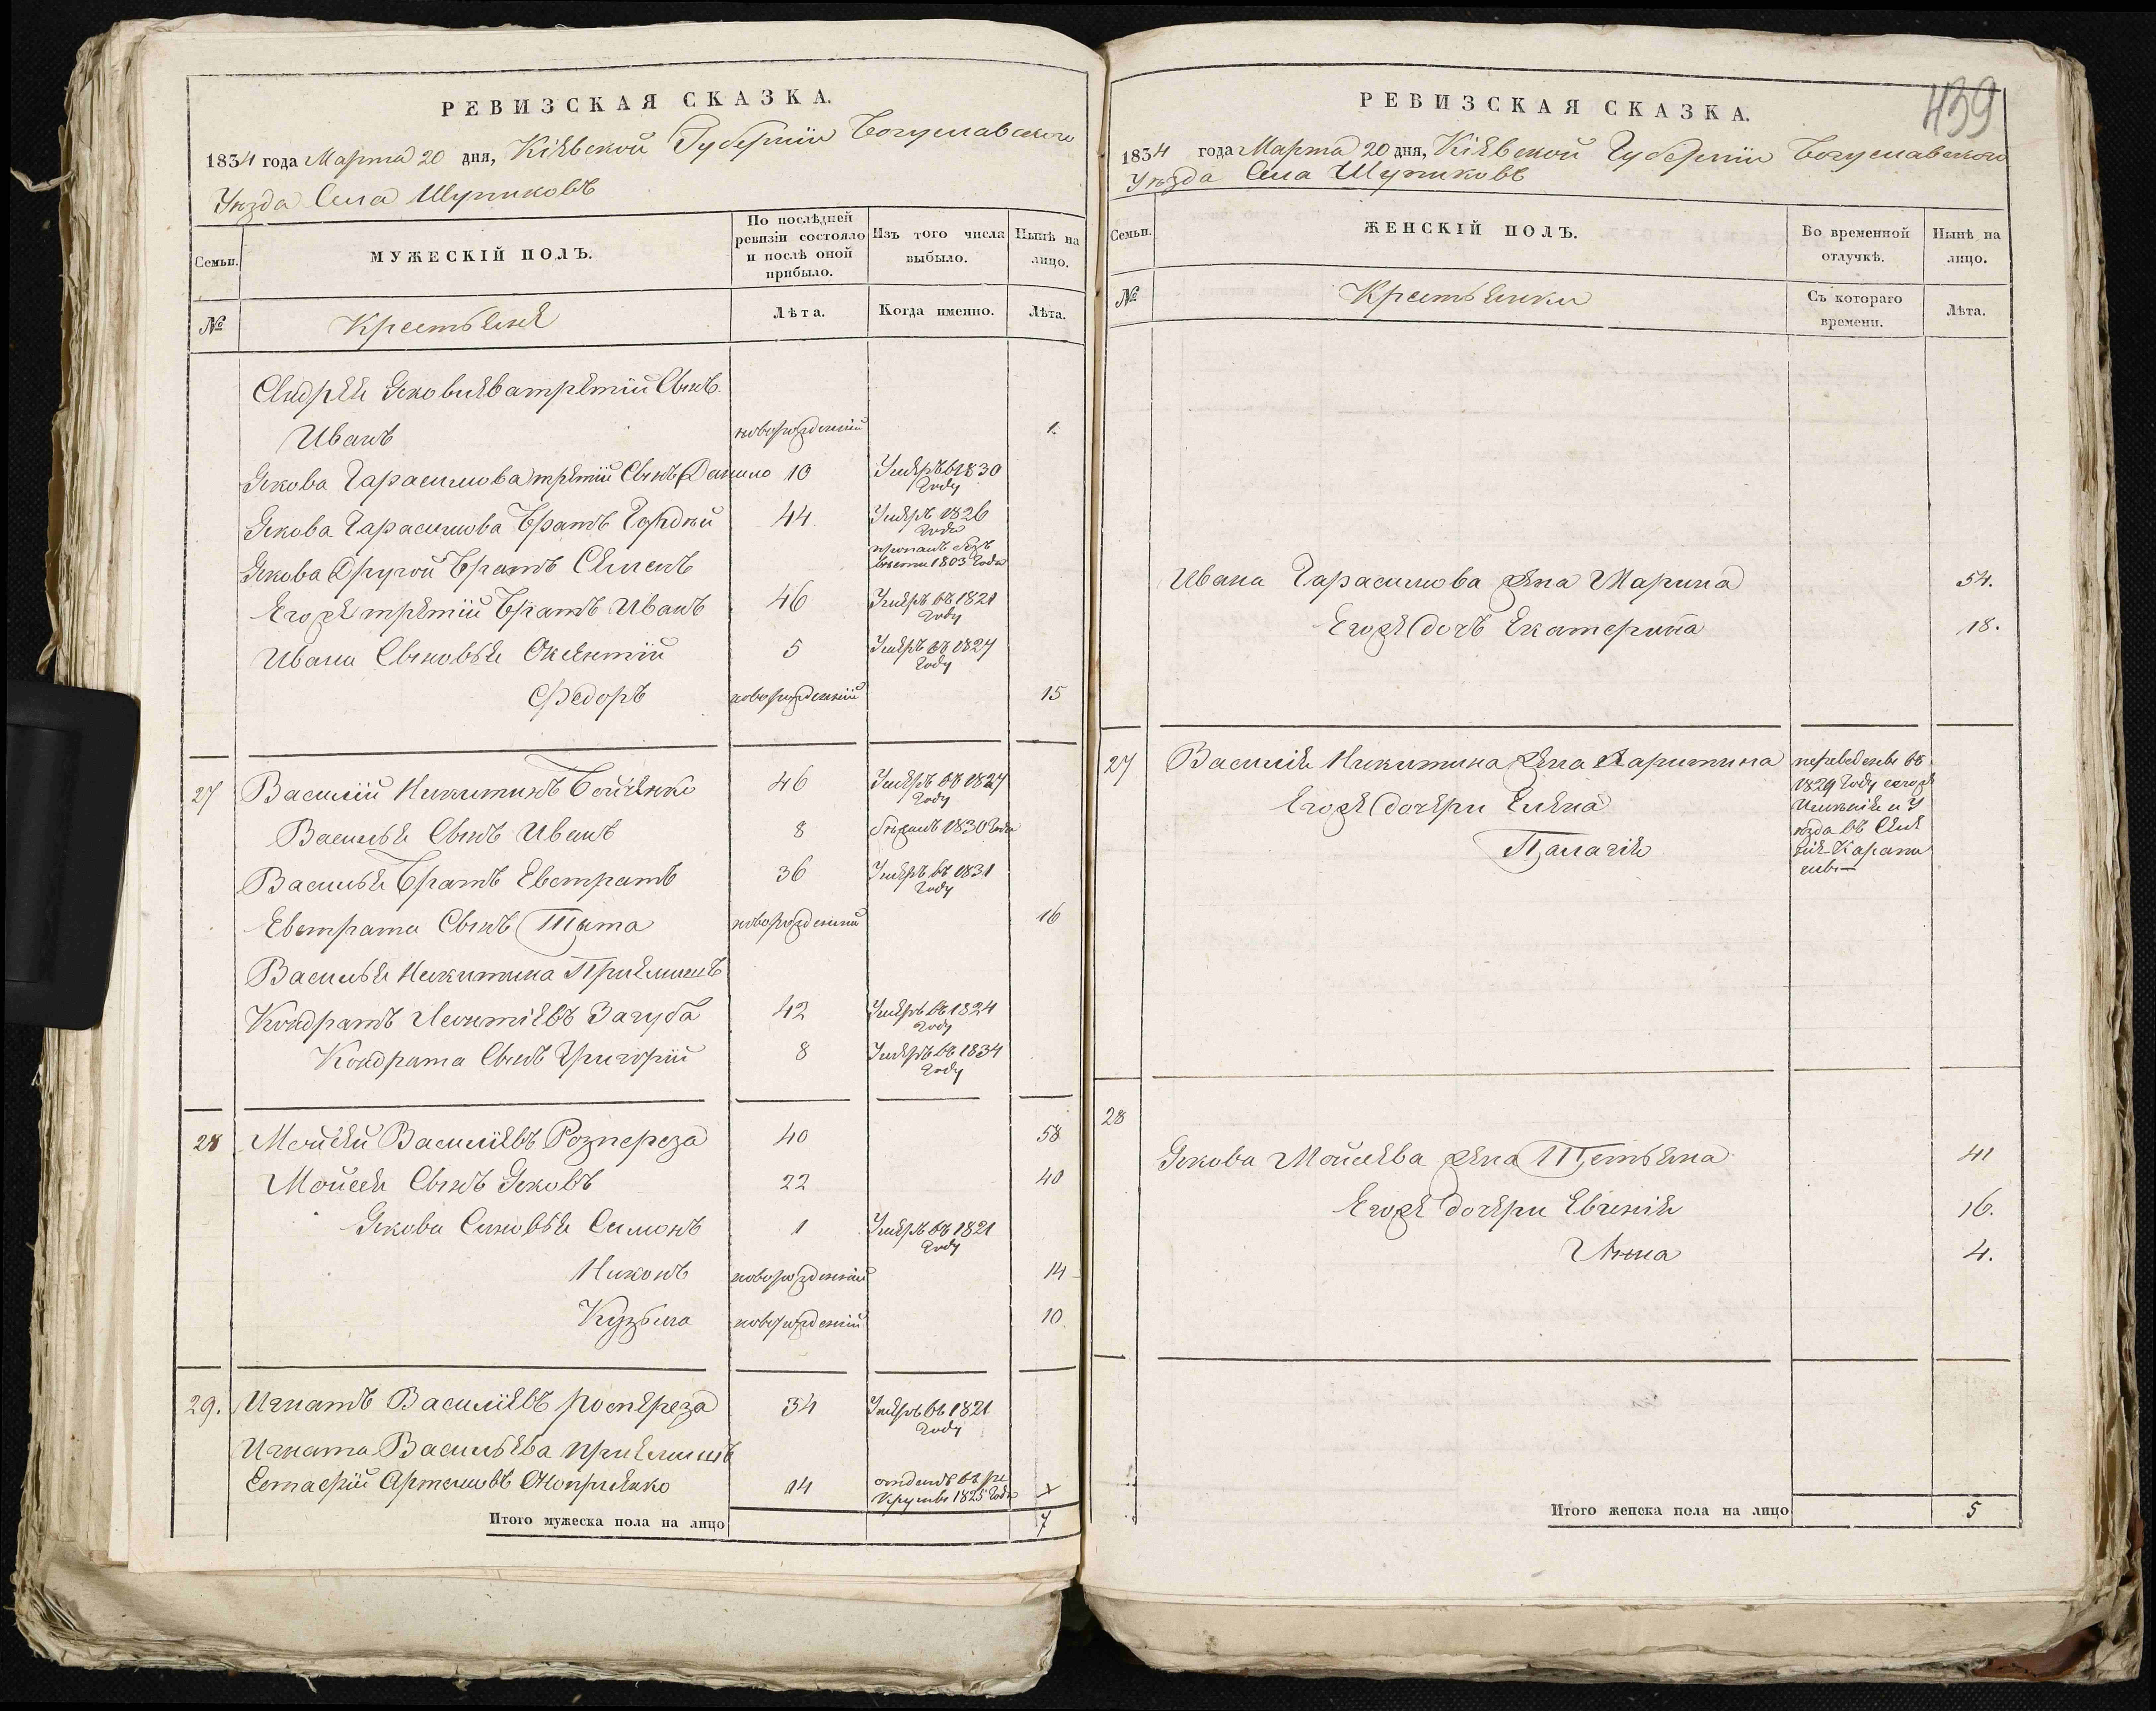 РЕВИЗСКАЯ СКАЗКА.
1834 года Марта 20 дня, Кіевской Губерніи Богуславского
Уезда Села Шупиковъ
Семьи.
МУЖЕСКІЙ ПОЛЪ.
По послѣдней ревизіи состояло и послѣ оной прибыло.
Изъ того числа выбыло.
Нынѣ на лицо.
№
Крестьяне
Лѣта.
Когда именно.
Лѣта.
Андрея Яковлева третій Сынъ
Иванъ новорожденній 1.
Якова Гарасимова третій Сынъ Данило 10 Умеръ въ 1830 Году
Якова Гарасимова Братъ Гордѣй 44 Умеръ 1826 Года
Якова Другой Братъ Семенъ пропалъ безъ вѣсти 1803 Года
Егоже третій Братъ Иванъ 46 Умеръ въ 1821 Году
Ивана Сыновья Оксентій 5 Умеръ въ 1827 Году
Федоръ новорожденній 15
27 Василій Никитинъ Бойченко 46 Умеръ въ 1827 Году
Василья Сынъ Иванъ 8 бѣжалъ 1830 Года
Василья Братъ Евстратъ 36 Умеръ въ 1831 Году
Евстрата Сынъ Тита новорожденний 16
Василья Никитина Приемишъ
Кондратъ Леонтіевъ Загуба 42 Умеръ въ 1824 Году
Кондрата Сынъ Григорій 8 Умеръ въ 1834 Году
28 Мойсей Василіевъ Розпереза 40 58
Мойсея Сынъ Яковъ 22 40
Якова Синовья Симонъ 1 Умеръ въ 1821 Году
Никонъ новорожденній 14
Кузьма новорожденній 10
29. Игнатъ Василіевъ роспереза 34 Умеръ въ 1821 Году
Игната Васильева приемишъ
Естафій Артемовъ Оноприенко 14 отданъ въ ре
Круты 1825 Года
Итого мужеска пола на лицо 7
РЕВИЗСКАЯ СКАЗКА.
439
1834 года Марта 20 дня, Кіевской Губерніи Богуславского
Уѣзда Села Шупиковъ
Семьи.
ЖЕНСКІЙ ПОЛЪ.
Во временной отлучкѣ.
Нынѣ на лицо.
№
Крестьянки
Съ котораго времени.
Лѣта.
Ивана Гарасимова жена Марина 54.
Егоже дочь Екатерина 18.
27 Василія Никитина жена Харитина переведены въ
1829 Году тогоже
Егоже дочери Елена Именія и У
Палагія езда въ Селе
28
Якова Мойсеева жена Тетьяна 41
Егоже дочери Евгенія 16.
Анна 4.
Итого женска пола на лицо 5